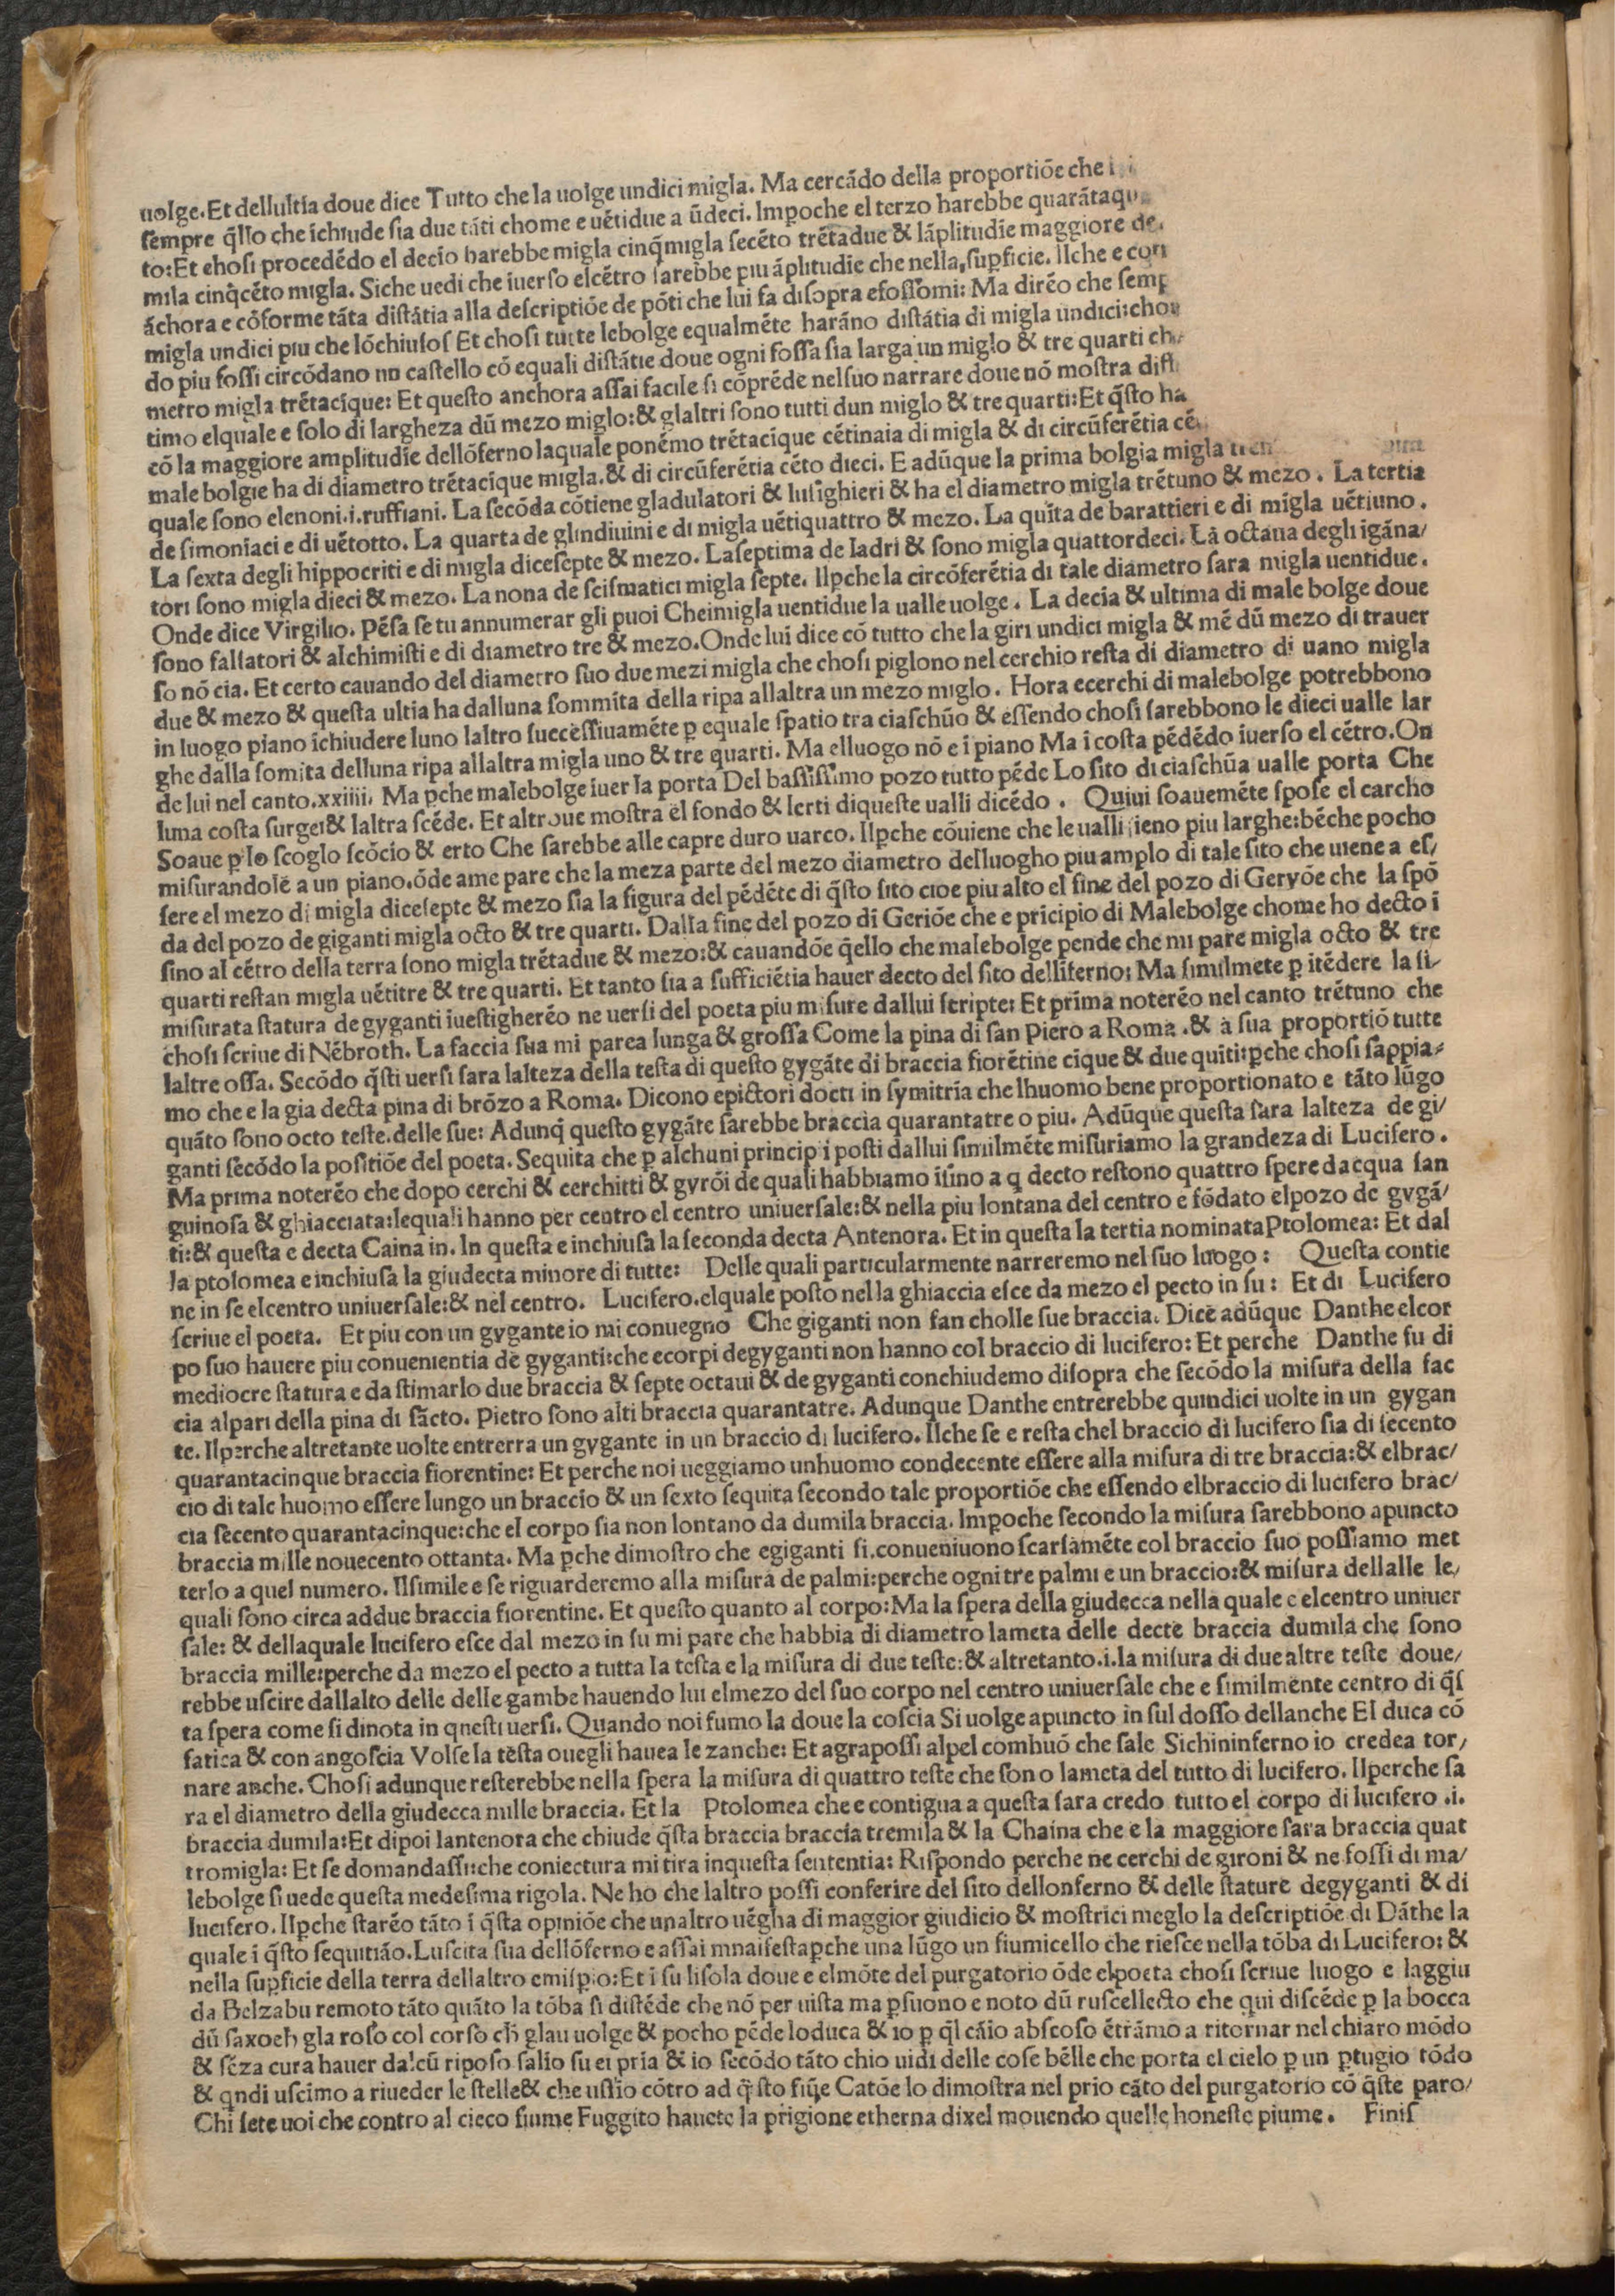 uolge.Et dellultía doue dice Tutto che la uolge undici migla. Ma cercádo della proportióe che
ſempre q̃llo che íchiude ſia due táti chome e uétidue a ũdeci. Imꝑoche el terzo harebbe quarátaqu
to:Et choſi procedédo el decío harebbe migla cinq̃migla ſecéto trétadue & láplitudíe maggiore de
mila cinq̃céto migla. Siche uedi che íuerſo elcétro ſarebbe piu áplitudíe che nella ſuꝑficie. Ilche e con
áchora e cóforme táta diſtátia alla deſcriptióe de póti che lui fa diſopra efoſſomi: Ma diréo che ſemp
migla undici piu che lóchiuſoſ Et choſi tutte lebolge equalméte haráno diſtátia di migla undici:chom
do piu foſſi circódano un caſtello có equali diſtátie doue ogni foſſa ſia larga un miglo & tre quarti ch
metro migla trétacíque: Et queſto anchora aſſai facile ſi cópréde nelſuo narrare doue nó moſtra diſt
timo elquale e ſolo di largheza dũ mezo miglo:& glaltri ſono tutti dun miglo & tre quarti:Et q̃ſto ha
có la maggiore amplitudíe dellóferno laquale ponémo trétacíque cétinaia di migla & di circũferétia cé
male bolgie ha di diametro trétacíque migla.& di circũferétia céto dieci. E adũque la prima bolgia migla tren
quale ſono elenoni.i.ruffiani. La ſecóda cótiene gladulatori & luſighieri & ha el diametro migla trétuno & mezo . La tertia
de ſimoniaci e di uétotto. La quarta de glindiuini e di migla uétiquattro & mezo. La quíta de barattieri e di migla uétiuno .
La ſexta degli hippocriti e di migla diceſepte & mezo. Laſeptima de ladri & ſono migla quattordeci. La octaua degli ígána/
tori ſono migla dieci & mezo. La nona de ſciſmatici migla ſepte. Ilꝑche la circóferétia di tale diametro ſara migla uentidue.
Onde dice Virgilio. Péſa ſe tu annumerar gli puoi Cheimigla uentidue la ualle uolge . La decía & ultima di male bolge doue
ſono falſatori & alchimiſti e di diametro tre & mezo.Onde lui dice có tutto che la giri undici migla & mé dũ mezo di trauer
ſo nó cia. Et certo cauando del diametro ſuo due mezi migla che choſi piglono nel cerchio reſta di diametro di uano migla
due & mezo & queſta ultía ha dalluna ſommita della ripa allaltra un mezo miglo . Hora ecerchi di malebolge potrebbono
in luogo piano íchiudere luno laltro ſucceſſiuaméte ꝑ equale ſpatio tra ciaſchũo & eſſendo choſi ſarebbono le dieci ualle lar
ghe dalla ſomita delluna ripa allaltra migla uno & tre quarti. Ma elluogo nó e í piano Ma í coſta pédédo íuerſo el cétro.On
de lui nel canto.xxiiii. Ma ꝑche malebolge íuer la porta Del baſſiſſimo pozo tutto péde Lo ſito di ciaſchũa ualle porta Che
luna coſta ſurge:& laltra ſcéde. Et altroue moſtra el fondo & lerti diqueſte ualli dicédo . Quiui ſoaueméte ſpoſe el carcho
Soaue ꝑ lo ſcoglo ſcócio & erto Che ſarebbe alle capre duro uarco. Ilꝑche cóuiene che le ualli ſieno piu larghe:béche pocho
miſurandole a un piano.óde ame pare che la meza parte del mezo diametro delluogho piu amplo di tale ſito che uiene a eſ/
ſere el mezo di migla diceſepte & mezo ſia la figura del pédéte di q̃ſto ſito cioe piu alto el fine del pozo di Geryóe che la ſpó
da del pozo de giganti migla octo & tre quarti. Dalla fine del pozo di Gerióe che e prícipio di Malebolge chome ho decto í
ſino al cétro della terra ſono migla trétadue & mezo:& cauandóe q̃ello che malebolge pende che mi pare migla octo & tre
quarti reſtan migla uétitre & tre quarti. Et tanto ſia a ſufficiétia hauer decto del ſito dellíferno: Ma ſimilmete ꝑ ítédere la ſi/
miſurata ſtatura de gyganti íueſtigheréo ne uerſi del poeta piu miſure dallui ſcripte: Et príma noteréo nel canto trétuno che
choſi ſcriue di Nébroth. La faccia ſua mi parea lunga & groſſa Come la pina di ſan Piero a Roma .& a ſua proportió tutte
laltre oſſa. Secódo q̃ſti uerſi ſara lalteza della teſta di queſto gygáte di braccia fiorétine cíque & due quíti:ꝑche choſi ſappia-
mo che e la gia decta pina di brózo a Roma. Dicono epictori docti in ſymitría che lhuomo bene proportionato e táto lũgo
quáto ſono octo teſte.delle ſue: Adunq̃ queſto gygáte ſarebbe braccia quarantatre o piu. Adũque queſta ſara lalteza de gi/
ganti ſecódo la poſitióe del poeta. Sequita che ꝑ alchuni principii poſti dallui ſimilméte miſuriamo la grandeza di Lucifero .
Ma prima noteréo che dopo cerchi & cerchitti & gyrói de quali habbiamo íſino a q decto reſtono quattro ſpere dacqua ſan
guinoſa & ghiacciata:lequali hanno per centro el centro uniuerſale:& nella piu lontana del centro e fódato elpozo de gygá/
ti:& queſta e decta Caina in. In queſta e inchiuſa la ſeconda decta Antenora. Et in queſta la tertia nominata Ptolomea: Et dal
la ptolomea e inchiuſa la giudecta minore di tutte: Delle quali particularmente narreremo nel ſuo luogo : Queſta contie
ne in ſe elcentro uniuerſale:& nel centro. Lucifero.elquale poſto nella ghiaccia eſce da mezo el pecto in ſu : Et di Lucifero
ſcriue el poeta. Et piu con un gygante io mi conuegno Che giganti non fan cholle ſue braccia. Dice adũque Danthe elcor
po ſuo hauere piu conuenientia de gyganti:che ecorpi degyganti non hanno col braccio di lucifero: Et perche Danthe fu di
mediocre ſtatura e da ſtimarlo due braccia & ſepte octaui & de gyganti conchiudemo diſopra che ſecódo la miſura della fac
cia alpari della pina di ſácto. Pietro ſono alti braccia quarantatre. Adunque Danthe entrerebbe quindici uolte in un gygan
te. Ilperche altretante uolte entrerra un gygante in un braccio di lucifero. Ilche ſe e reſta chel braccio di lucifero ſia di ſecento
quarantacinque braccia fiorentine: Et perche noi ueggiamo unhuomo condecente eſſere alla miſura di tre braccia:& elbrac/
cio di tale huomo eſſere lungo un braccio & un ſexto ſequita ſecondo tale proportióe che eſſendo elbraccio di lucifero brac/
cia ſecento quarantacinque:che el corpo ſia non lontano da dumila braccia. Imꝑoche ſecondo la miſura ſarebbono apuncto
braccia mille nouecento ottanta. Ma ꝑche dimoſtro che egiganti ſi.conueniuono ſcarſaméte col braccio ſuo poſſiamo met
terlo a quel numero. Ilſimile e ſe riguarderemo alla miſura de palmi:perche ogni tre palmi e un braccio:& miſura dellalle le/
quali ſono circa addue braccia fiorentine. Et queſto quanto al corpo:Ma la ſpera della giudecca nella quale e elcentro uniuer
ſale: & dellaquale lucifero eſce dal mezo in ſu mi pare che habbia di diametro lameta delle decte braccia dumila che ſono
braccia mille:perche da mezo el pecto a tutta la teſta e la miſura di due teſte:& altretanto.i.la miſura di due altre teſte doue/
rebbe uſcire dallalto delle delle gambe hauendo lui elmezo del ſuo corpo nel centro uniuerſale che e ſimilmente centro di q̃ſ
ta ſpera come ſi dinota in queſti uerſi. Quando noi fumo la doue la coſcia Si uolge apuncto in ſul doſſo dellanche El duca có
fatica & con angoſcia Volſe la teſta ouegli hauea le zanche: Et agrapoſſi alpel comhuó che ſale Sichininferno io credea tor/
nare anche. Choſi adunque reſterebbe nella ſpera la miſura di quattro teſte che ſono lameta del tutto di lucifero. Ilperche ſa
ra el diametro della giudecca mille braccia. Et la Ptolomea che e contigua a queſta ſara credo tutto el corpo di lucifero .i.
braccia dumila:Et dipoi lantenora che chiude q̃ſta braccia braccia tremila & la Chaina che e la maggiore ſara braccia quat
tromigla: Et ſe domandaſſi:che coniectura mi tira inqueſta ſententia: Riſpondo perche ne cerchi de gironi & ne foſſi di ma/
lebolge ſi uede queſta medeſima rigola. Ne ho che laltro poſſi conferire del ſito dellonferno & delle ſtature degyganti & di
lucifero. Ilꝑche ſtaréo táto í q̃ſta opinióe che unaltro uégha di maggior giudicio & moſtrici meglo la deſcriptióe di Dáthe la
quale í q̃ſto ſequitiáo.Luſcita ſua dellóferno e aſſai mnaifeſtaꝑche una lũgo un fiumicello che rieſce nella tóba di Lucifero: &
nella ſuꝑficie della terra dellaltro emiſꝑio:Et í ſu liſola doue e elmóte del purgatorio óde elpoeta choſi ſcriue luogo e laggiu
da Belzabu remoto táto quáto la tóba ſi diſtéde che nó per uiſta ma ꝑſuono e noto dũ ruſcellecto che qui diſcéde ꝑ la bocca
dũ ſaxoch gla roſo col corſo ch̃ glau uolge & pocho péde loduca & io ꝑ q̃l cáio abſcoſo étrámo a ritornar nel chiaro módo
& ſéza cura hauer dalcũ ripoſo ſalío ſu ei pría & io ſecódo táto chio uidi delle coſe bélle che porta el cielo ꝑ un ꝑtugio tódo
& qndi uſcimo a riueder le ſtelle& che uſlio cótro ad q̃ſto fiũe Catóe lo dimoſtra nel prio cáto del purgatorio có q̃ſte paro/
Chi ſete uoi che contro al cieco fiume Fuggito hauete la prigione etherna dixel mouendo quelle honeſte piume. Finiſ